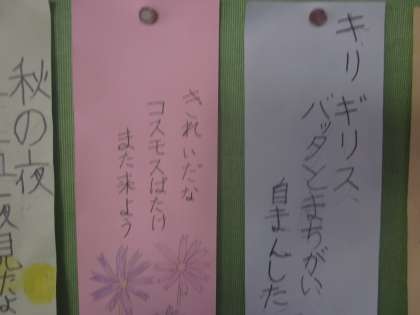 キリギリス、
バッタとまちがい
自まんした
きれいだな
コスモスばたけ
また来よう
秋の夜